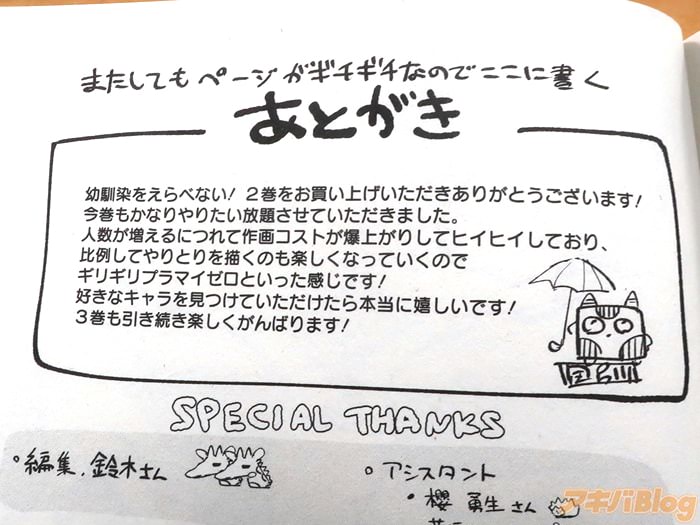 またしてもページがギチギチなのでここに書く
あとがき
幼馴染をえらべない! 2巻をお買い上げいただきありがとうございます!
今巻もかなりやりたい放題させていただきました。
人数が増えるにつれて作画コストが爆上がりしてヒイヒイしており、
比例してやりとりを描くのも楽しくなっていくので
ギリギリプラマイゼロといった感じです!
好きなキャラを見つけていただけたら本当に嬉しいです!
3巻も引き続き楽しくがんばります!
SPECIAL THANKS
・編集、鈴木さん
・アシスタント
・櫻 勇生さん
アキバBlog